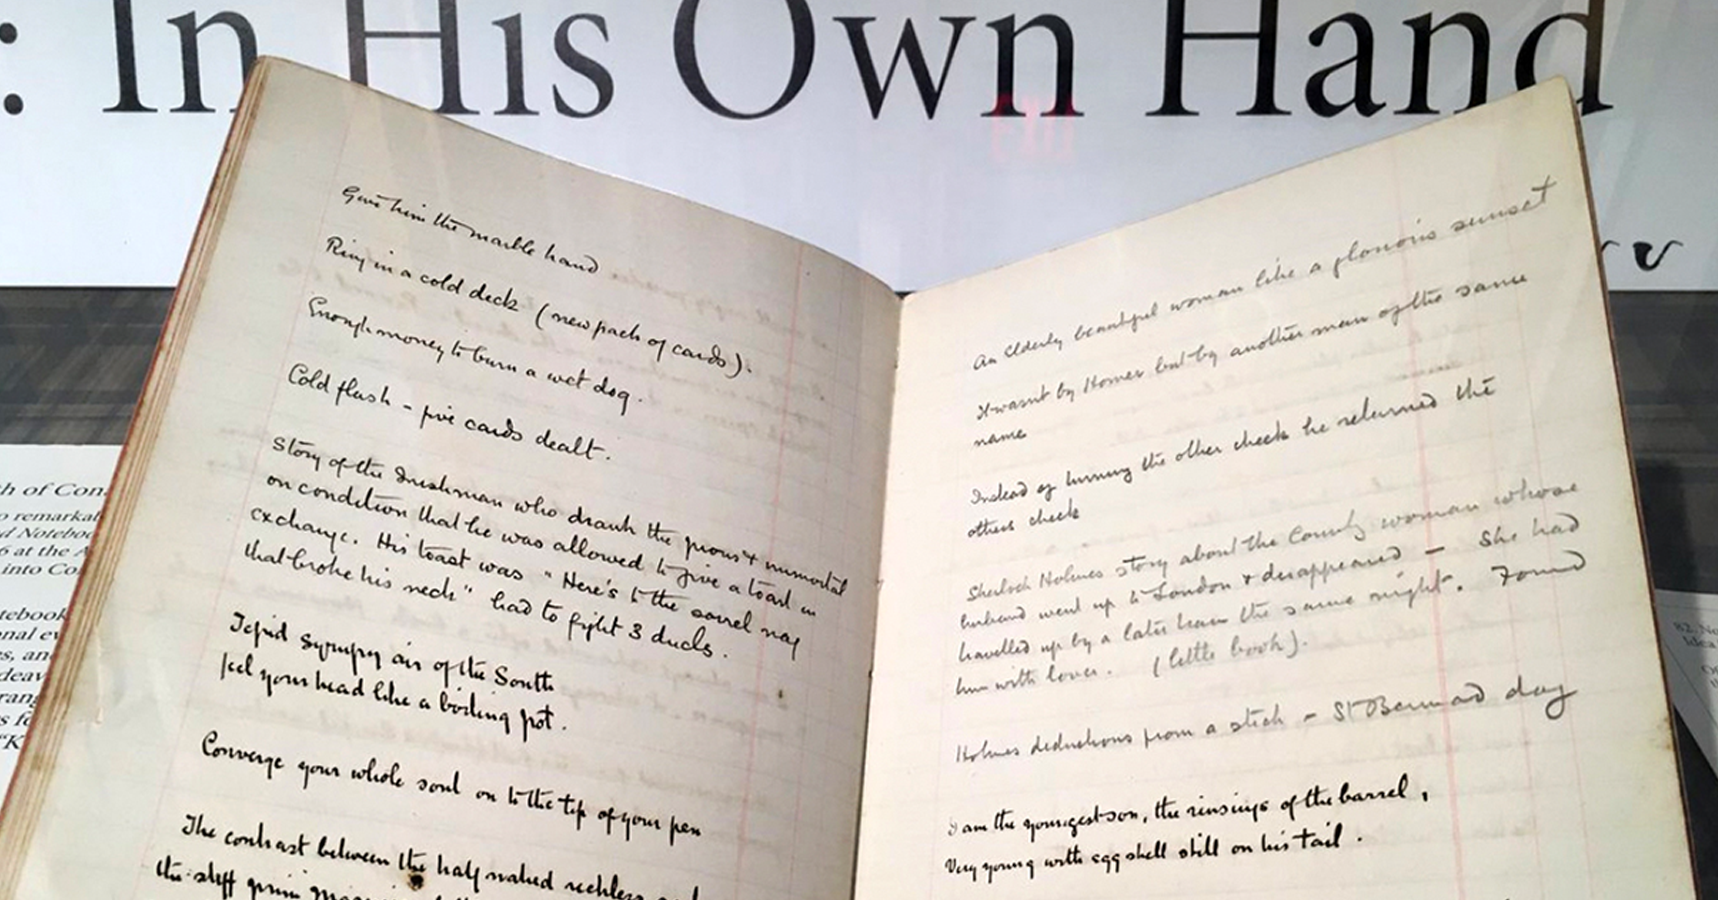 : In His Own Hand
Give him the marble hand
Ring in a cold deck (new pack of cards).
Enough money to burn a wet dog.
Cold flush - five cards dealt.
Story of the Irishman who drank the pious & immortal
on condition that he was allowed to give a toast in
exchange. His toast was "Here's to the sorrel nag
that broke his neck" had to fight 3 duels.
Tepid air of the South
feel your head like a boiling pot.
Converge your whole soul on to the tip of your pen
The contrast between the half naked reckless
the stiff grim
An elderly beautiful woman like a glorious sunset
It wasn't by Homer but by another man of the same
name
Instead of turning the other cheek he returned the
others cheek
Sherlock Holmes story about the County woman whose
husband went up to London & disappeared - She had
travelled up by a later train the same night. Found
him with lover. (little book).
Holmes deductions from a stick - St Bernard dog
I am the youngest son, the rinsings of the barrel,
Very young with egg shell still on his tail.
th of Con
o remarka
d Notebo
6 at the A
into Co
tebook
nal ev
s, an
deav
rang
s fo
"K
82. No
Idea